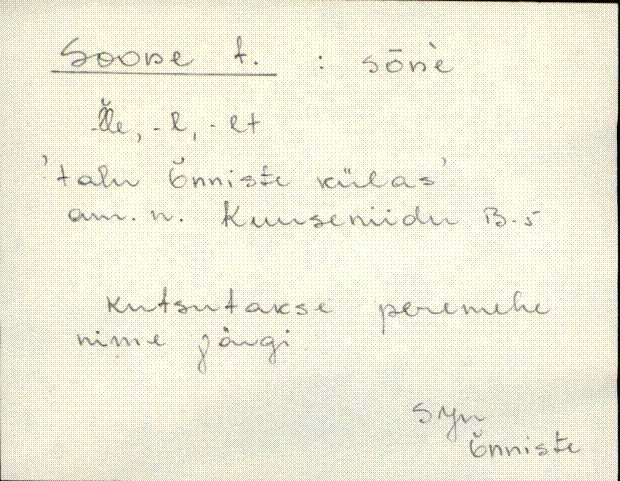 Soone t. : sōnè
-le, -l, -lt
'talu Õnniste külas'
am. n. Kuuseniidu B-5
kutsutakse peremehe
nime järgi
Syn
Õnniste